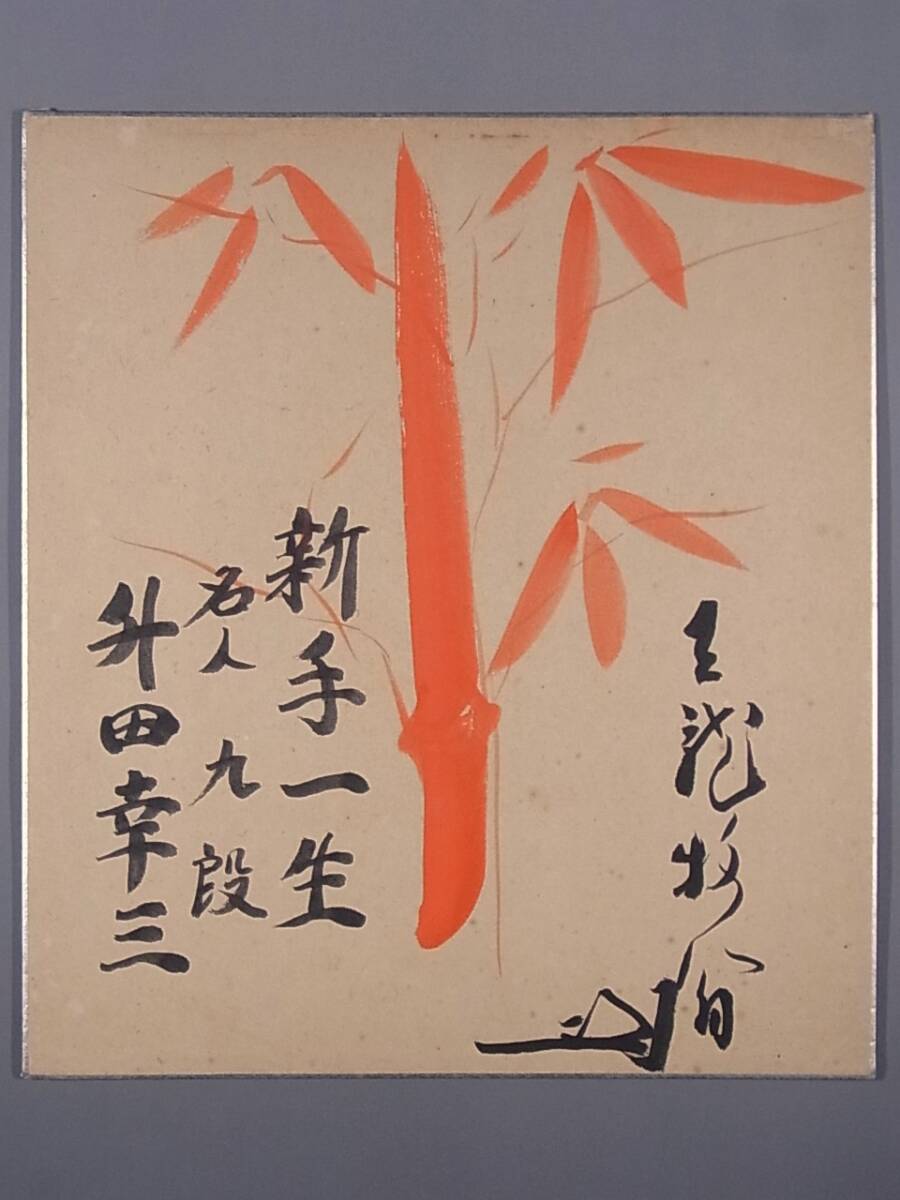 天龍牧翁
新手一生
名人 九段
升田幸三